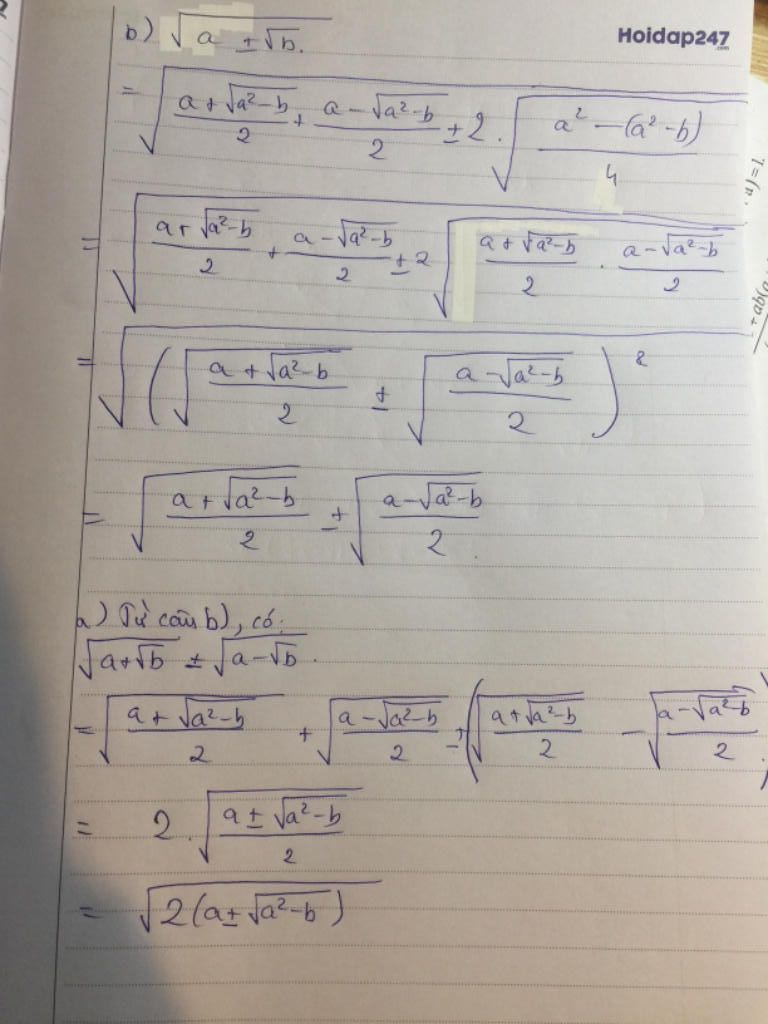 Hoidap247
.com
b) √(a ± √b).
= √((a + √(a²-b))/2 + (a - √(a²-b))/2 ± 2 . √((a² - (a² - b))/4))
= √((a + √(a²-b))/2 + (a - √(a²-b))/2 ± 2 √((a + √(a²-b))/2 . (a - √(a²-b))/2))
= √((√((a + √(a²-b))/2) ± √((a - √(a²-b))/2))²)
= √((a + √(a²-b))/2) ± √((a - √(a²-b))/2).
a) Từ câu b), có:
√(a+√b) ± √(a-√b).
= √((a + √(a²-b))/2) + √((a - √(a²-b))/2) ± (√((a + √(a²-b))/2) - √((a - √(a²-b))/2))
= 2 . √((a ± √(a²-b))/2)
= √(2(a ± √(a²-b)))